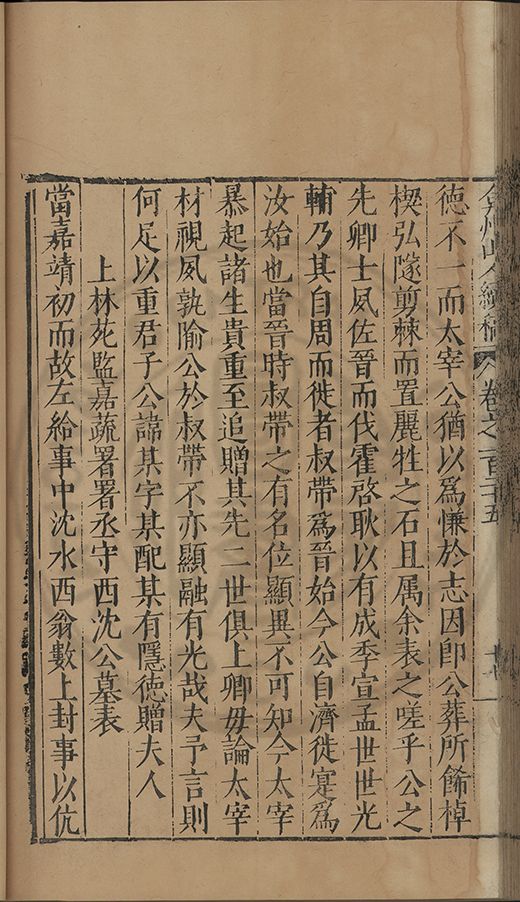 弇州山人續稿 卷之一百二十五
德不一而太宰公猶以爲慊於志因卽公葬所餙棹
楔弘隧剪棘而置麗牲之石且属余表之嗟乎公之
先卿士夙佐晉而伐霍啓耿以有成季宣孟世世光
輔乃其自周而徙者叔帶爲晉始今公自濟徙寔爲
汝始也當晉時叔帶之有名位顯異不可知今太宰
暴起諸生貴重至追贈其先二世俱上卿毋論太宰
材視夙孰隃公於叔帶不亦顯融有光哉夫予言則
何足以重君子公諱某字某配某有隱德贈夫人
上林苑監嘉蔬署署丞守西沈公墓表
當嘉靖初而故左給事中沈水西翁數上封事以伉